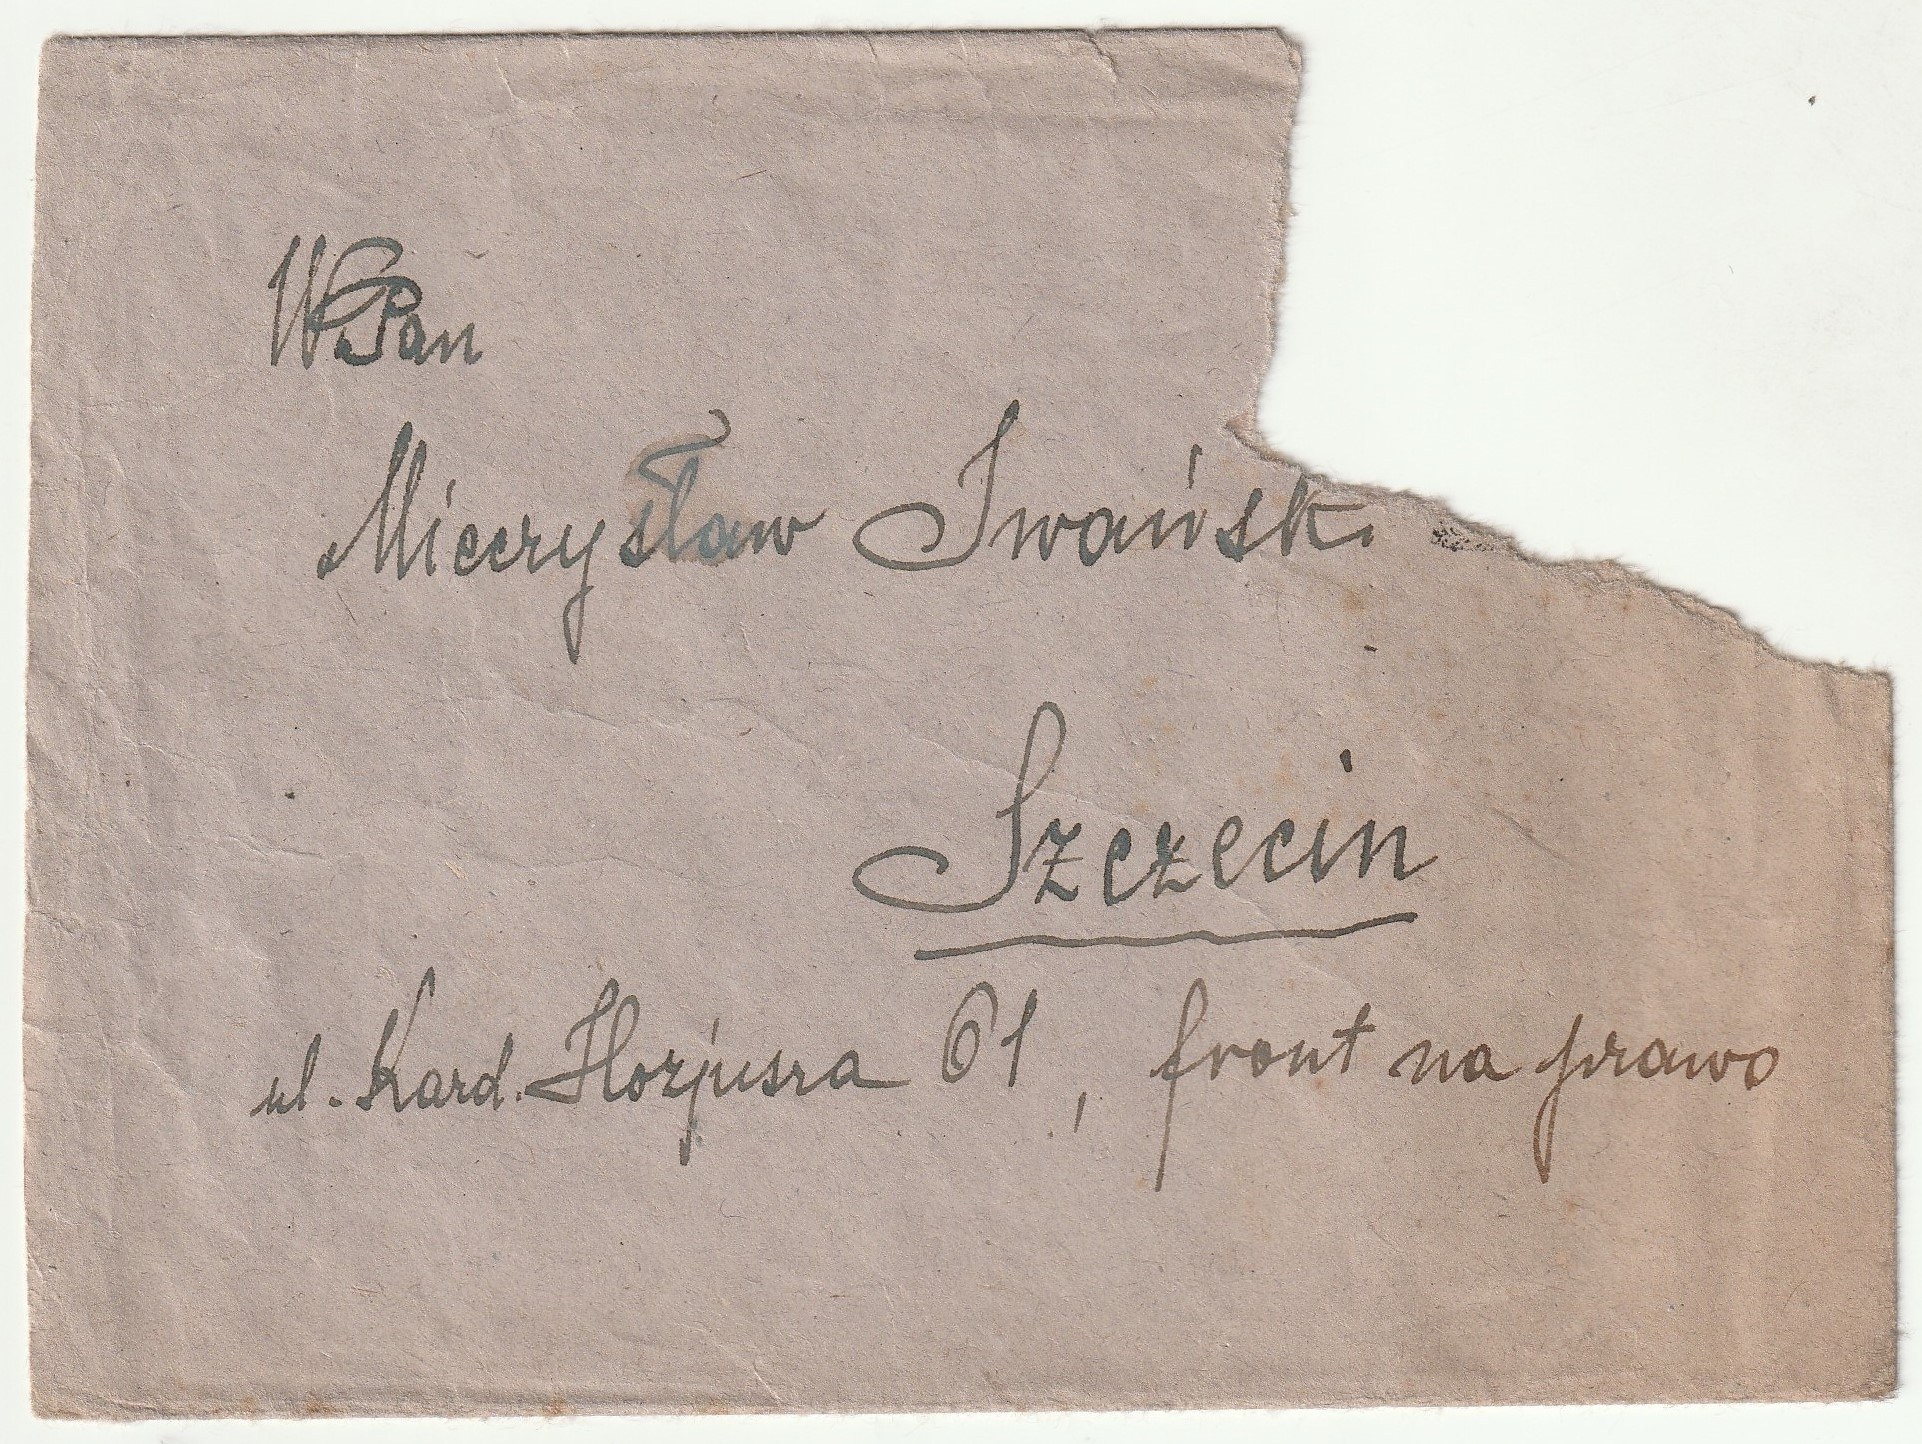 WPan
Mieczysław Iwański
Szczecin
ul. Kard. Hozjusza 61, front na prawo